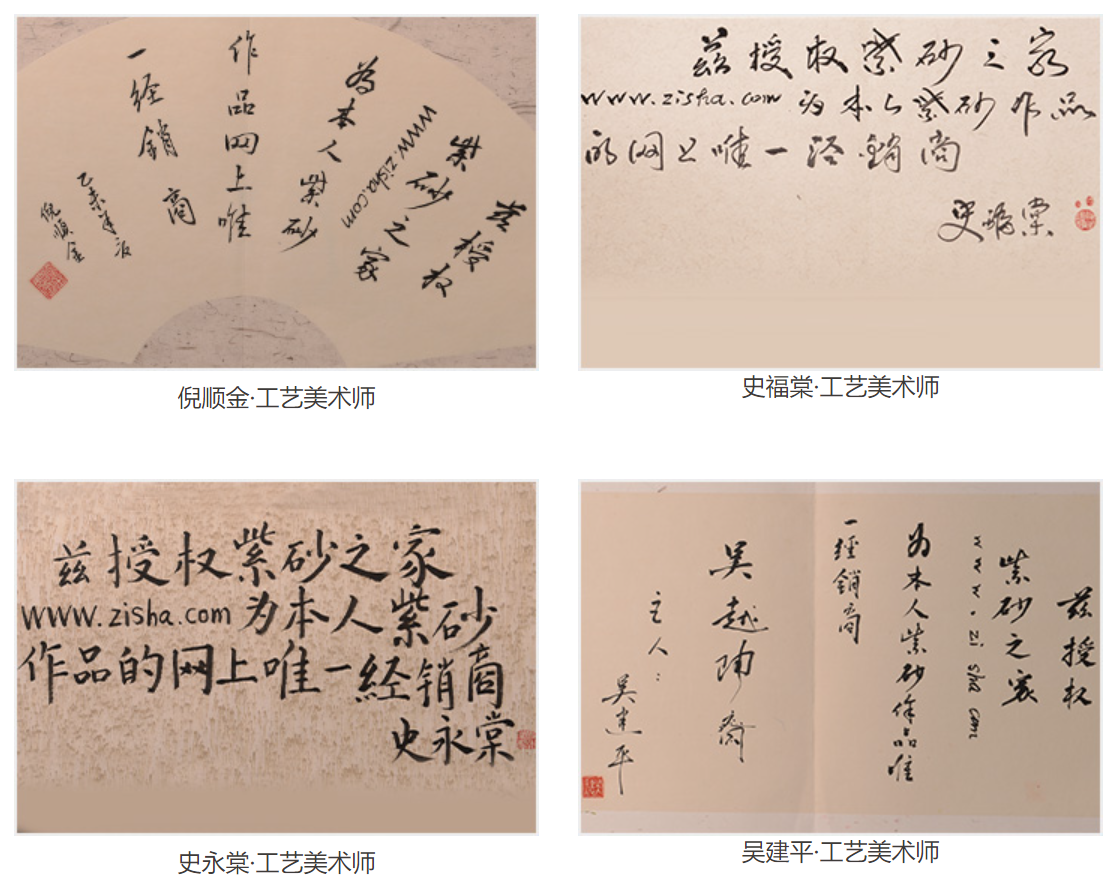 兹授权
紫砂之家
www.zisha.com
为本人紫砂
作品网上唯
一经銷商
乙未年夜
倪顺金
倪顺金·工艺美术师
兹授权紫砂之家
www.zisha.com 为本人紫砂作品
的网上唯一经銷商
史福棠
史福棠·工艺美术师
兹授权紫砂之家
www.zisha.com 为本人紫砂
作品的网上唯一経销商
史永棠
史永棠·工艺美术师
兹授权
紫砂之家
www.zisha.com
为本人紫砂作品唯
一經銷商
吴越陶斋
主人：
吴建平
吴建平·工艺美术师